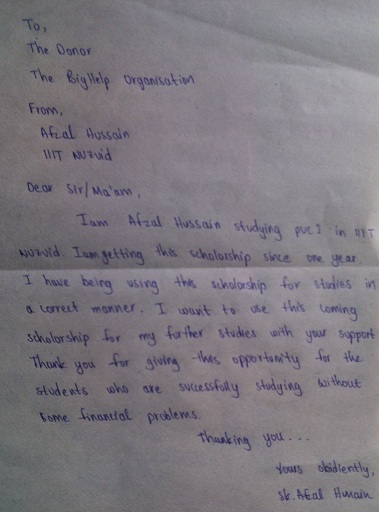 To,
The Donor
The BigHelp Organisation
From,
Afzal Hussain
IIIT Nuzvid
Dear Sir/Ma'am,
I am Afzal Hussain studying puc2 in IIIT
Nuzvid. I am getting this scholorship since one year.
I have being using this scholorship for studies in
a correct manner. I want to use this coming
scholorship for my further studies with your support
Thank you for giving this opportunity for the
students who are successfully studying without
some financial problems.
Thanking you...
Yours obidiently,
Sk. Afzal Hussain